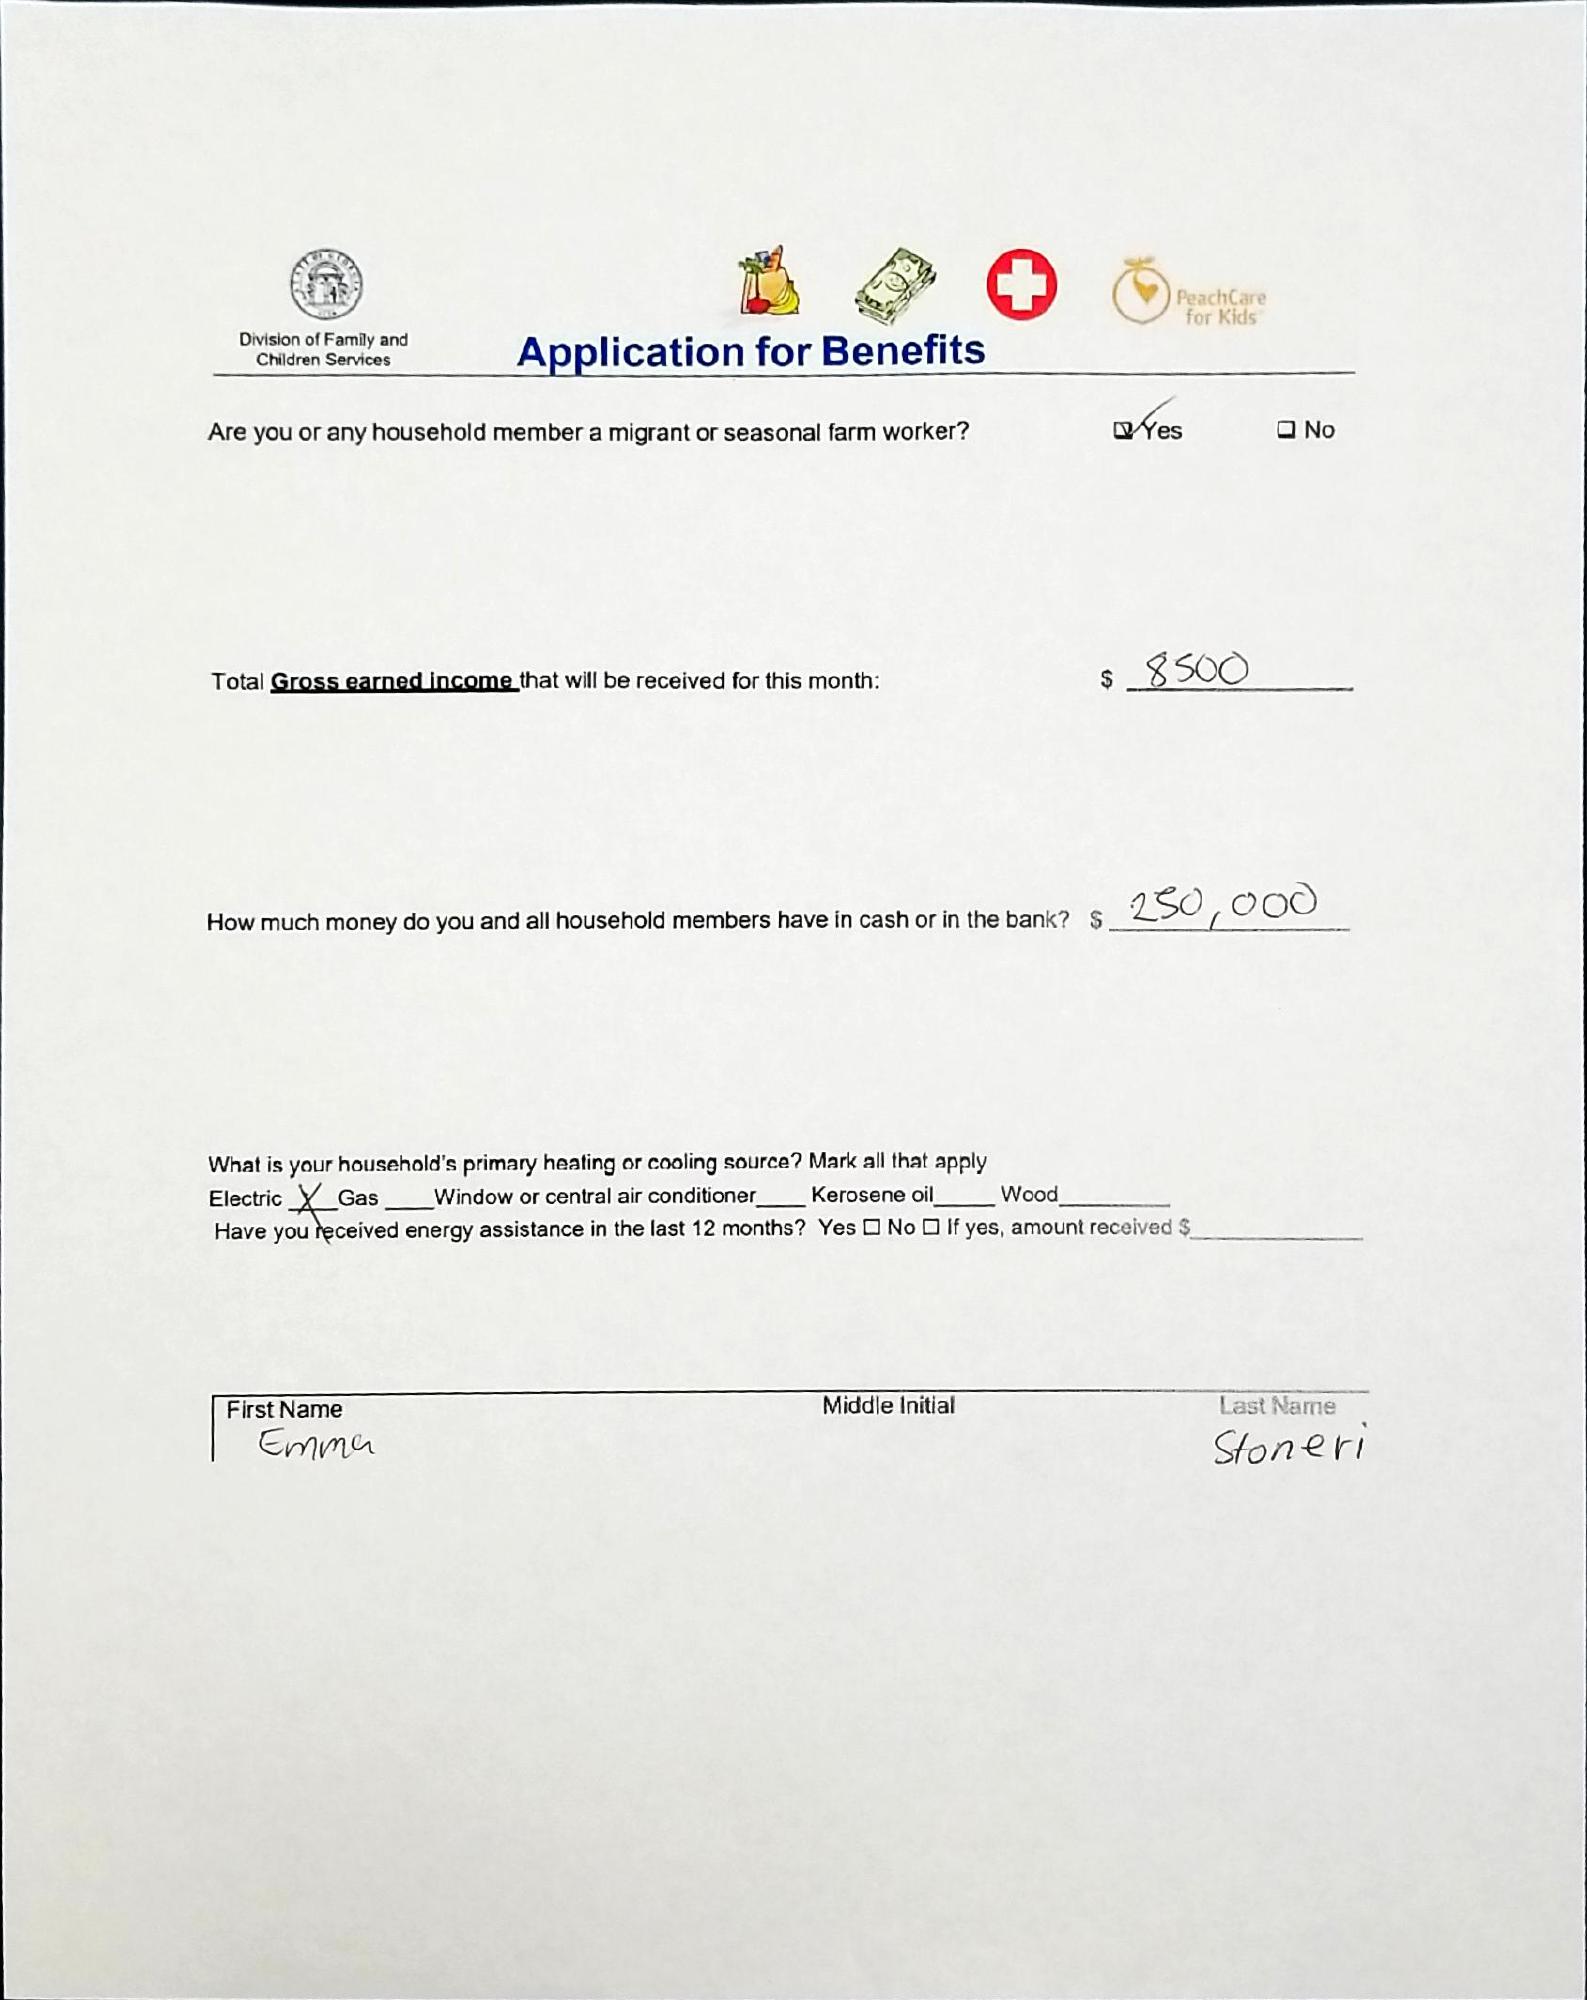 Division of Family and
Children Services
PeachCare
for Kids
Application for Benefits
Are you or any household member a migrant or seasonal farm worker? ☑ Yes ☐ No
Total Gross earned income that will be received for this month: $ 8500
How much money do you and all household members have in cash or in the bank? $ 250,000
What is your household's primary heating or cooling source? Mark all that apply
Electric X Gas ____ Window or central air conditioner ____ Kerosene oil ____ Wood ____
Have you received energy assistance in the last 12 months? Yes ☐ No ☐ If yes, amount received $ ____
First Name Middle Initial Last Name
Emma Stoneri